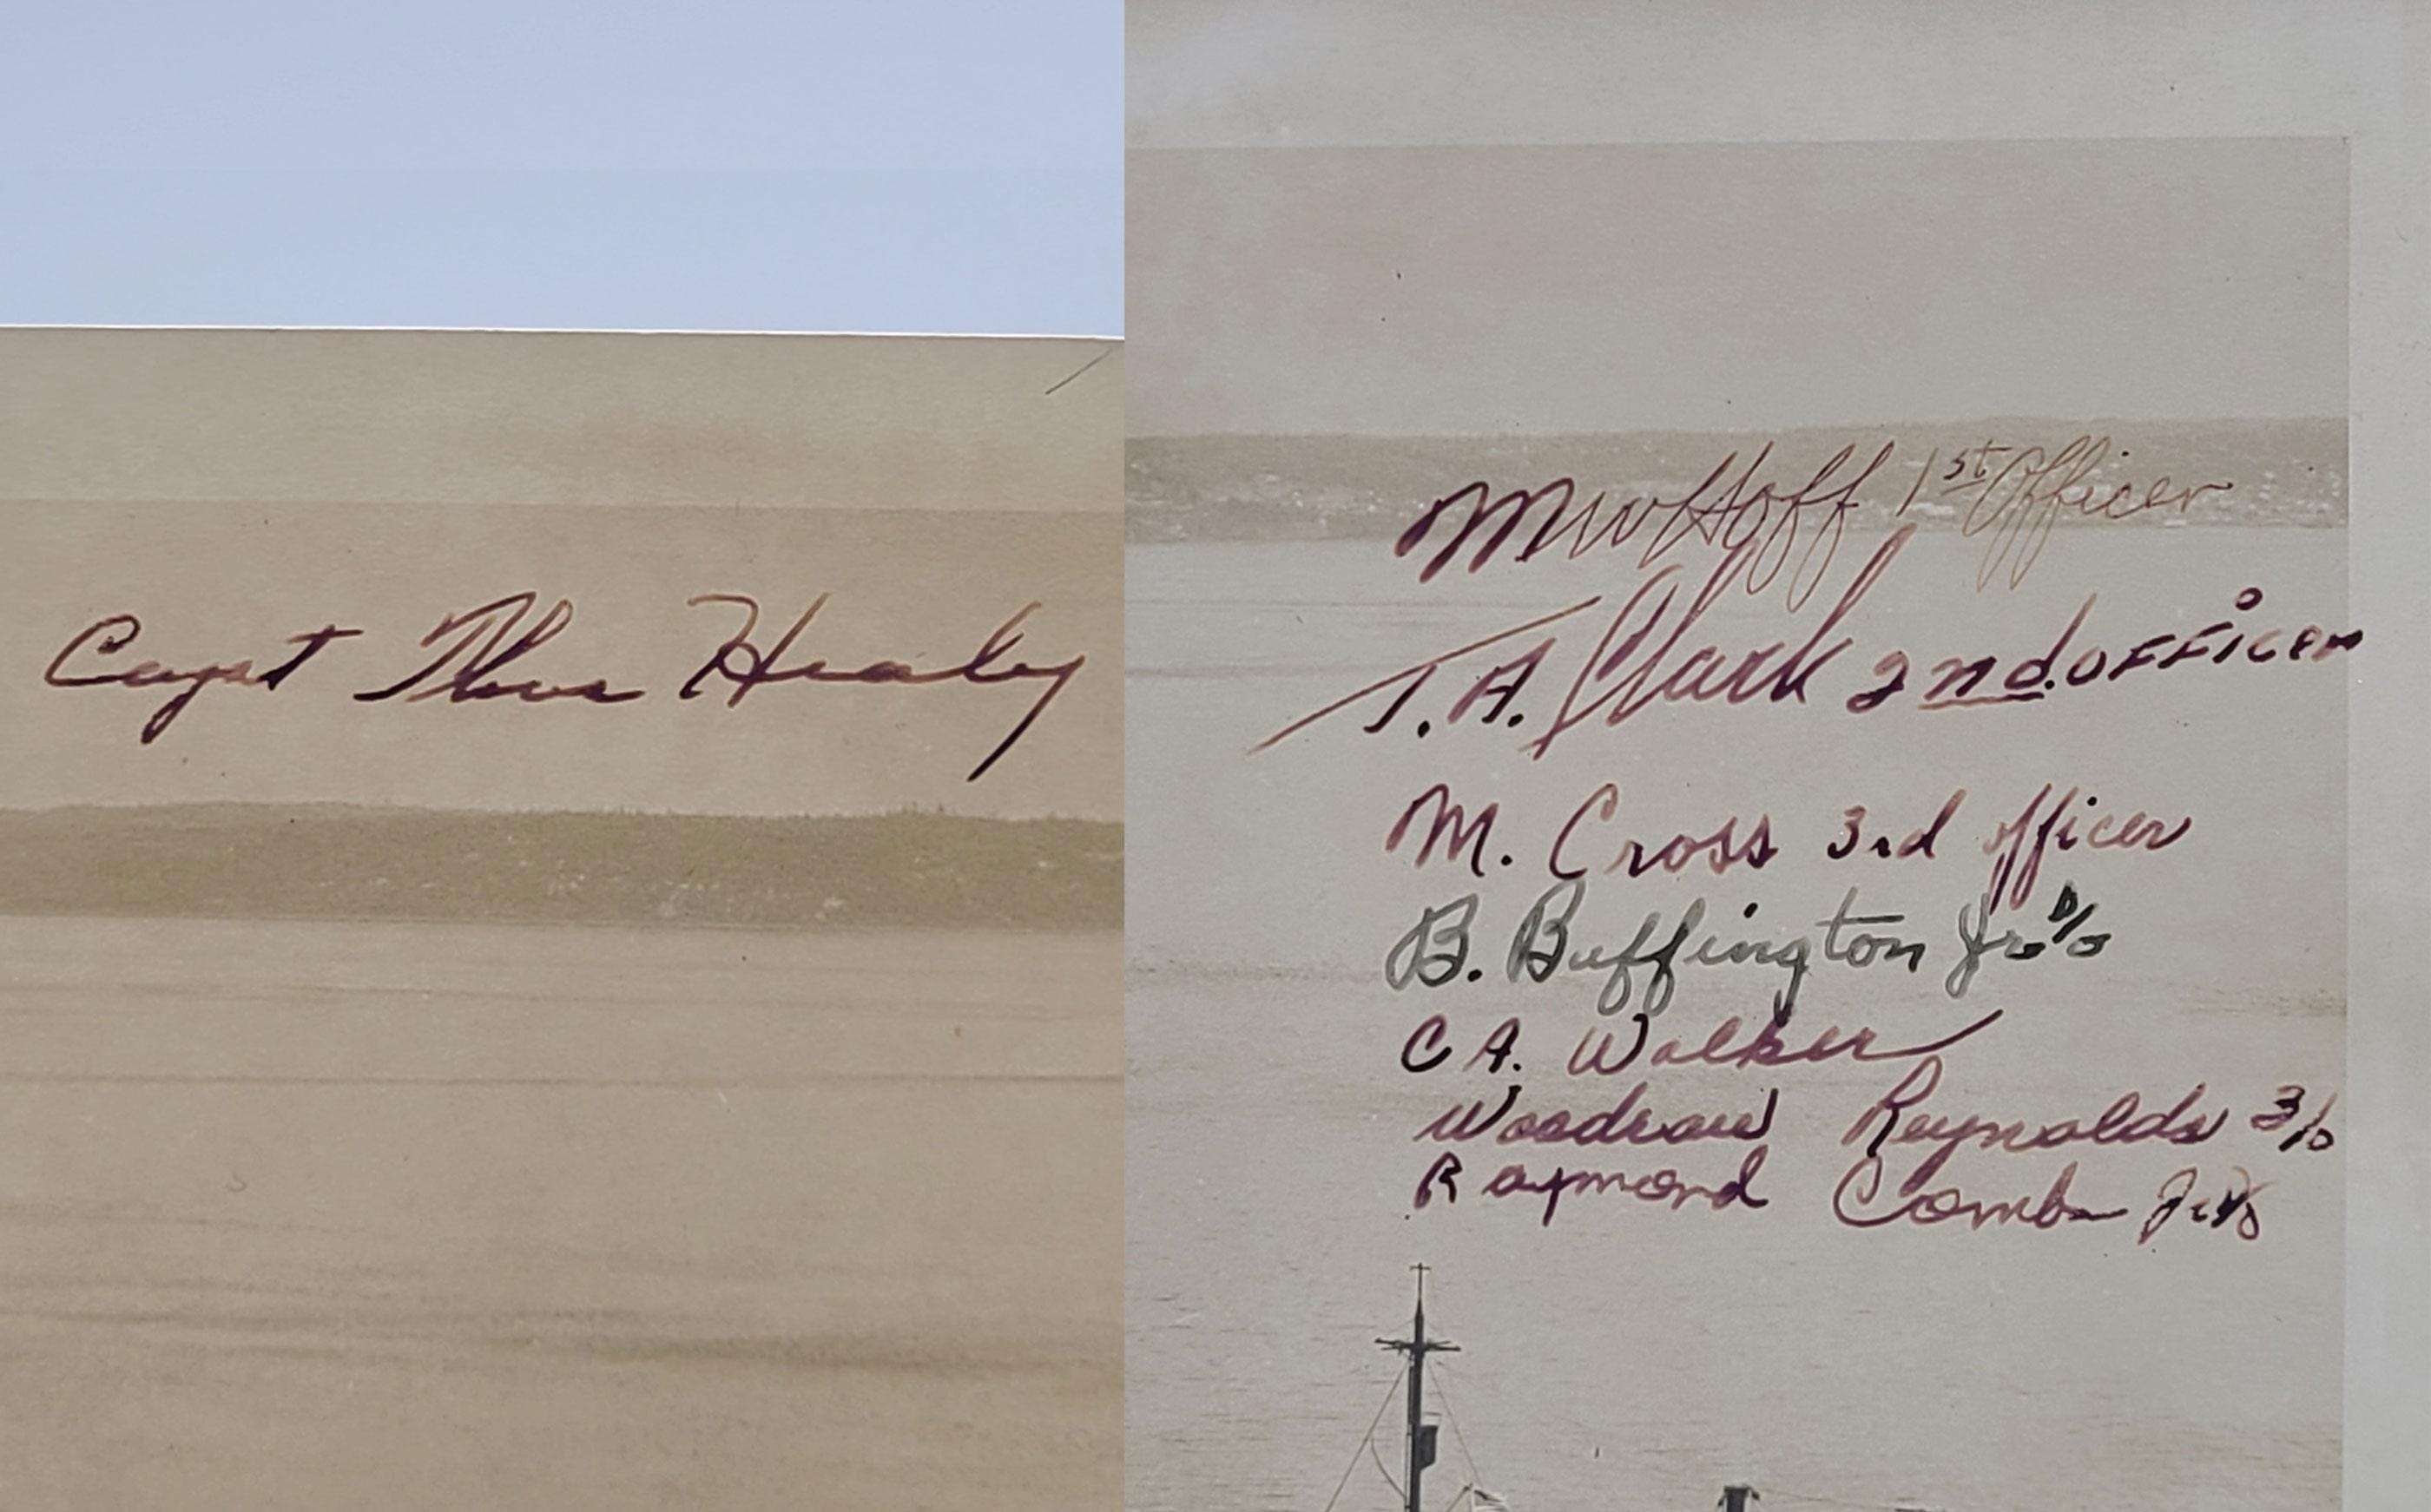 Capt Thos Healey
MW Hoff 1st Officer
T. A. Clark 2nd. OFFicer
M. Cross 3rd officer
B. Buffington Jr. D/O
C A. Walker
Woodrow Reynolds 3/O
Raymond Combs